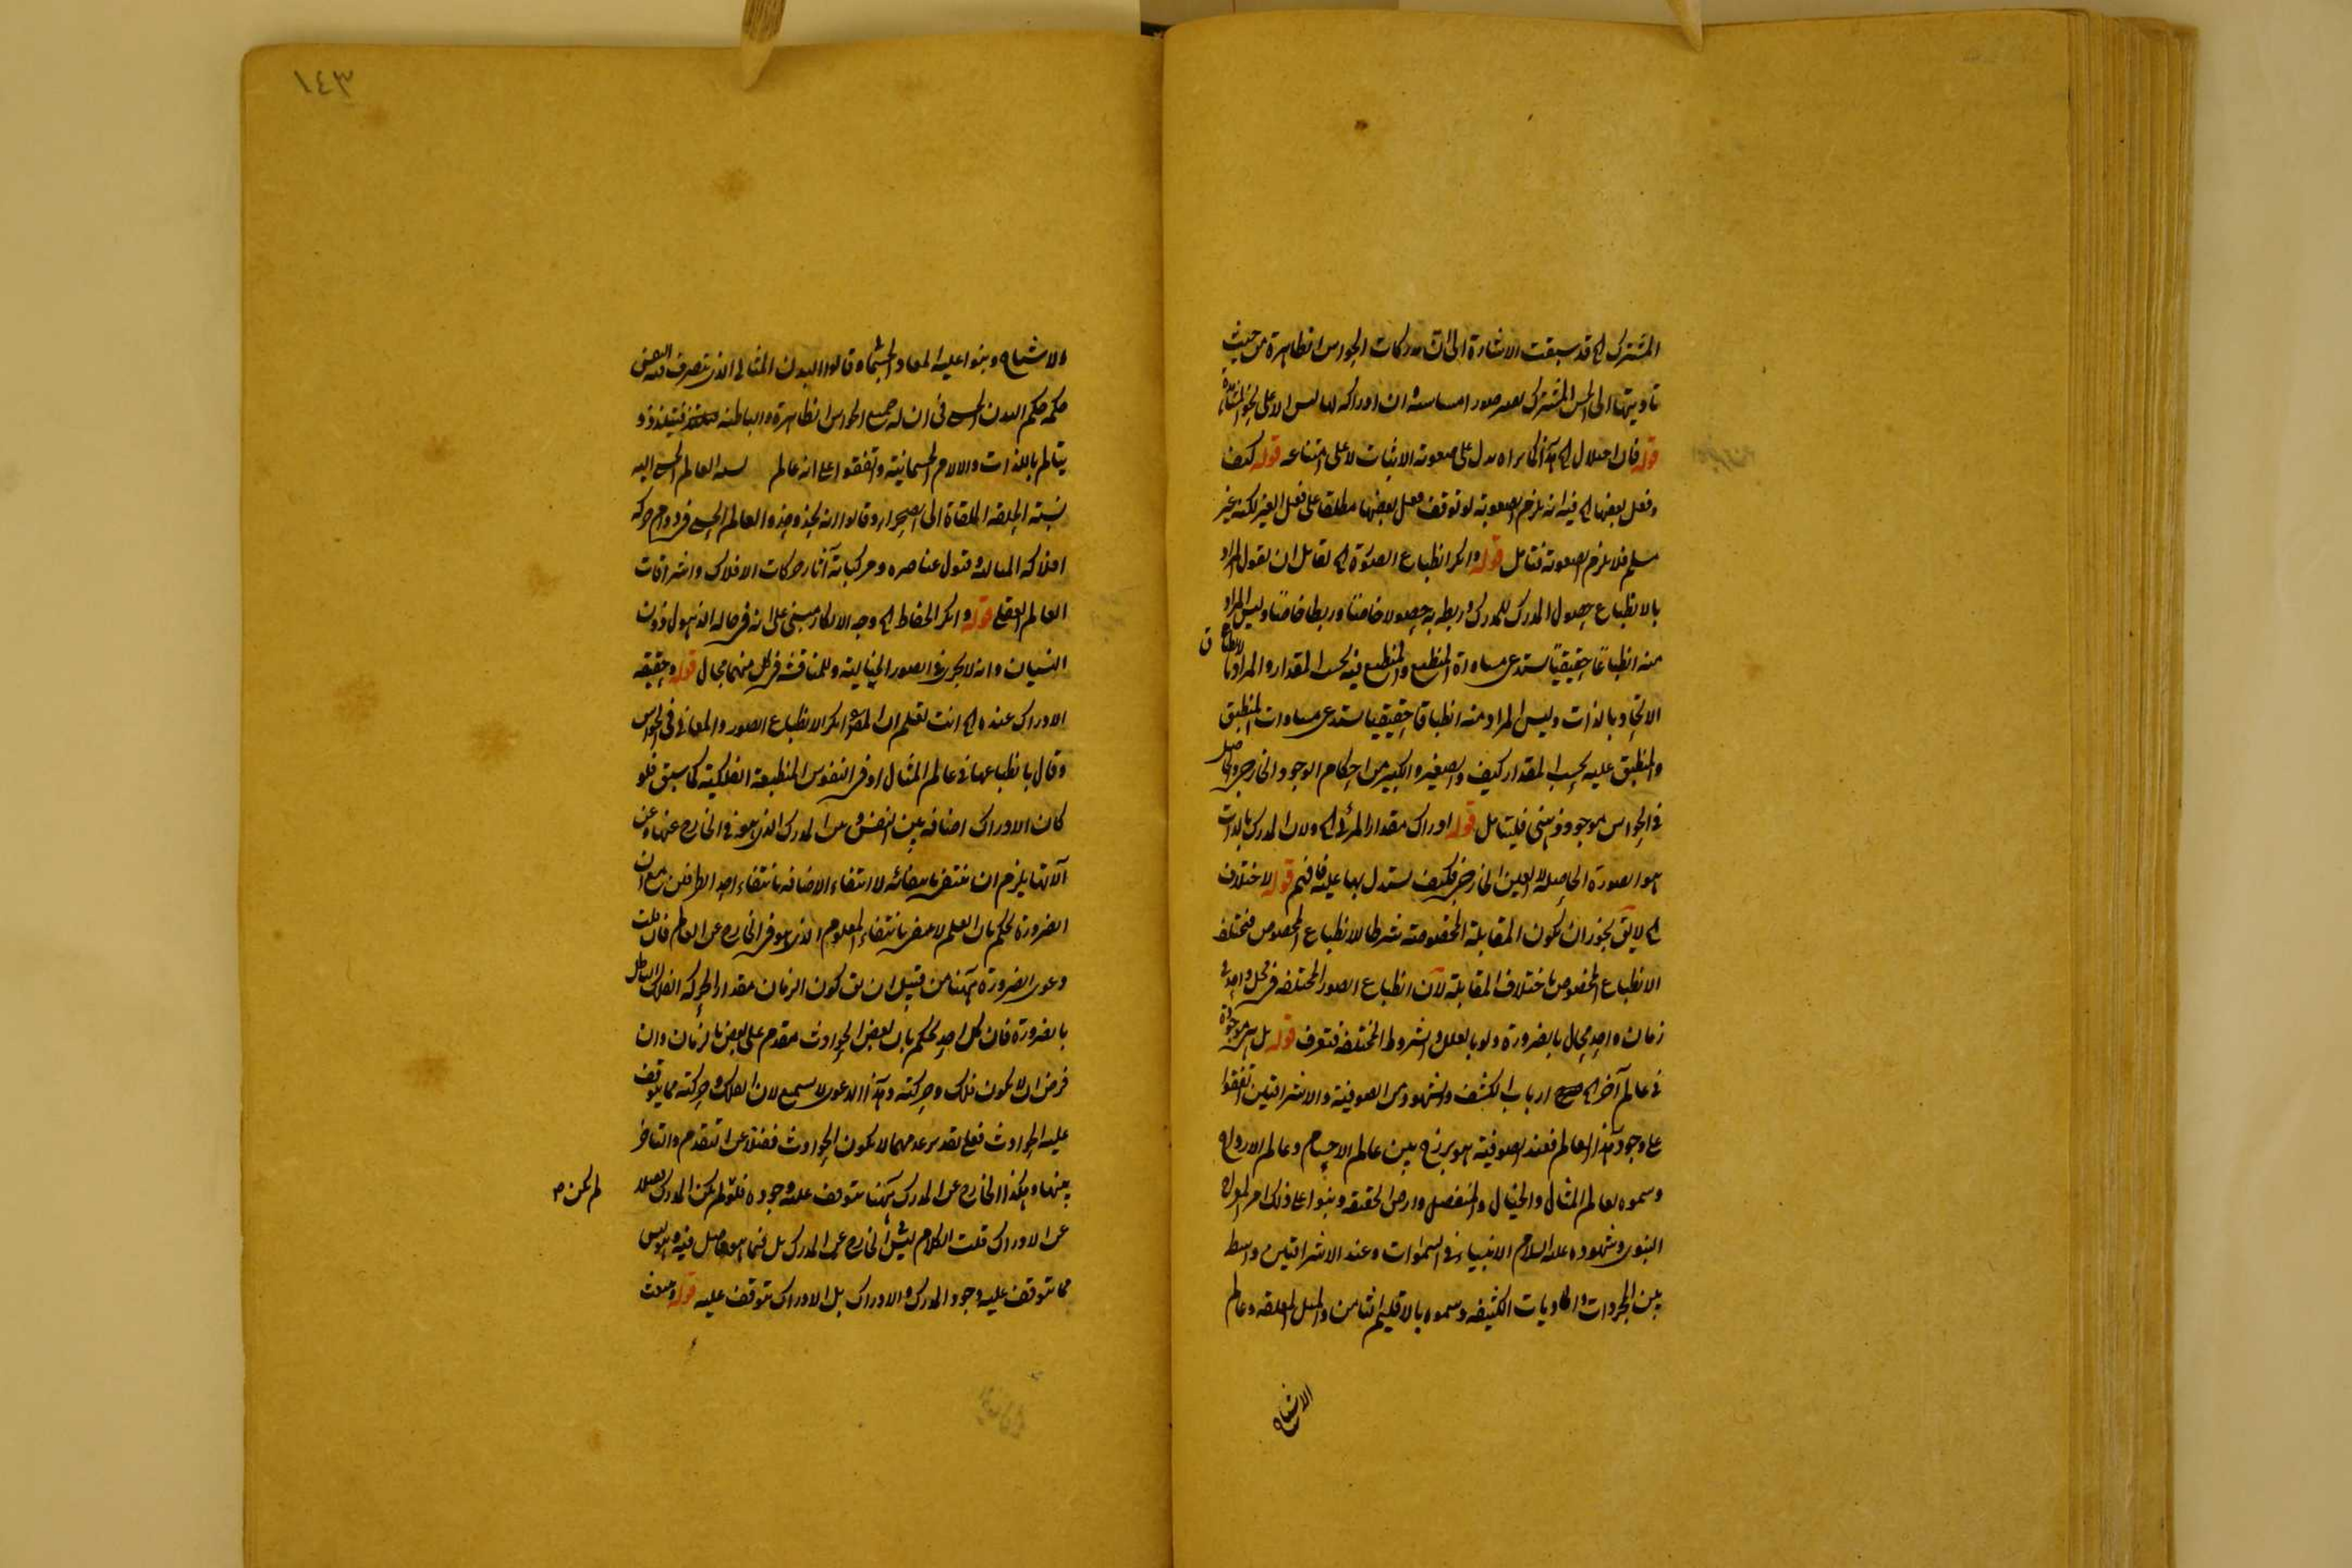 المشترك الخ قد سبقت الاشارة الى ان مدركات الحواس الظاهرة من حيث
تأديتها الى الحس المشترك صور ان ادراكه لها ليس الا على نحو المشاهدة
قوله فان اختلال الخ هذا كما تراه يدل على صعوبة الاثبات لا على امتناعه قوله كيف
وفعل بعضها الخ فيه انه يلزم الصعوبة لو توقف فعل بعضها مطلقا على فعل الغير لكنه غير
مسلم فلا يلزم الصعوبة فتأمل قوله وانكر انطباع الصورة الخ لقائل ان يقول المراد
بالانطباع حصول المدرك للمدرك وربطه به حصولا خاصا وربطا خاصا وليس المراد
منه انطباعا حقيقيا يستدعي مساواة المنطبع والمنطبع فيه بحسب المقدار والمراد بالانطباق
الاتحاد بالذات وليس المراد منه انطباقا حقيقيا يستدعي مساوات المنطبق
والمنطبق عليه بحسب المقدار كيف والصغير والكبير من احكام الوجود الخارجي والحاصل
في الحواس موجود ذهني فليتأمل قوله ادراك مقدار المرئي الخ ولان المدرك بالذات
هو الصورة الحاصلة لا العين الخارجي فكيف يستدل بها عليه فافهم قوله لاختلاف
الخ لا يق يجوز ان تكون المقابلة المخصوصة شرطا للانطباع المخصوص فيختلف
الانطباع المخصوص باختلاف المقابلة لان انطباع الصور المختلفة في محل واحد في
زمان واحد محال بالضرورة ولو بالعلل والشروط المختلفة فتعرف قوله بل هي موجودة
في عالم آخر الخ ارباب الكشف والشهود من الصوفية والاشراقيين اتفقوا
على وجود هذا العالم فعند الصوفية هو برزخ بين عالم الاجسام وعالم الارواح
وسموه بعالم المثال والخيال والمنفصل وارض الحقيقة وبنوا على ذلك امر المعراج
النبوي وشهوده عليه السلام الانبياء في السموات وعند الاشراقيين واسط
بين المجردات والماديات الكثيفة وسموه بالاقليم الثامن والمثل المعلقة وعالم
الاشباح
١٤٣
والاشباح وبنوا عليه المعاد الجسماني وقالوا البدن المثالي الذي يتصرف فيه النفس
حكمه حكم البدن الحسي في ان له جميع الحواس الظاهرة والباطنة فيتلذذ و
يتألم باللذات والالام الجسمانية واتفقوا على انه عالم نسبة العالم الحسي اليه
نسبة الحلقة الملقاة الى الصحراء وقالوا انه يحذو حذو العالم الحسي في دوام حركة
افلاكه المثالية وقبول عناصره ومركباته آثار حركات الافلاك واشراقات
العالم العقلي قوله وانكر الحفاظ الخ وجه الانكار مبني على انه في حالة الذهول دون
النسيان وانه لا يجري في الصور الخيالية وللمناقشة في كل منهما مجال قوله وحقيقة
الادراك عنده الخ انت تعلم ان المص انكر الانطباع الصور والمعاني في الحواس
وقال بانطباعها في عالم المثال او في النفوس المنطبعة الفلكية كما سبق فلو
كان الادراك اضافة بين النفس وبين المدرك الذي هو في الخارج عنها وعن
آلاتها يلزم ان تنتفي بانتفائه لا انتفاء الاضافة بانتفاء احد الطرفين مع ان
الضرورة تحكم بان العلم لا ينتفي بانتفاء المعلوم الذي هو في الخارج عن العالم فان قلت
دعوى الضرورة ههنا من قبيل ان يق كون الزمان مقدارا لحركة الفلك باطل
بالضرورة فان كل احد يحكم بان بعض الحوادث مقدم على بعض بالزمان وان
فرض ان لا يكون فلك وحركته وهذا الدعوى لا يسمع لان الفلك وحركته مما يتوقف
عليه الحوادث فعلى تقدير عدمهما لا تكون الحوادث فضلا عن التقدم والتأخر
بينها وهكذا الخارج عن المدرك ههنا يتوقف عليه وجوده فلو لم يكن المدرك فضلا
لم يكن ص
عن الادراك قلت الكلام في شيء الخارج عن المدرك بل فيما هو حاصل فيه وليس
مما يتوقف عليه وجود المدرك والادراك بل الادراك يتوقف عليه قوله